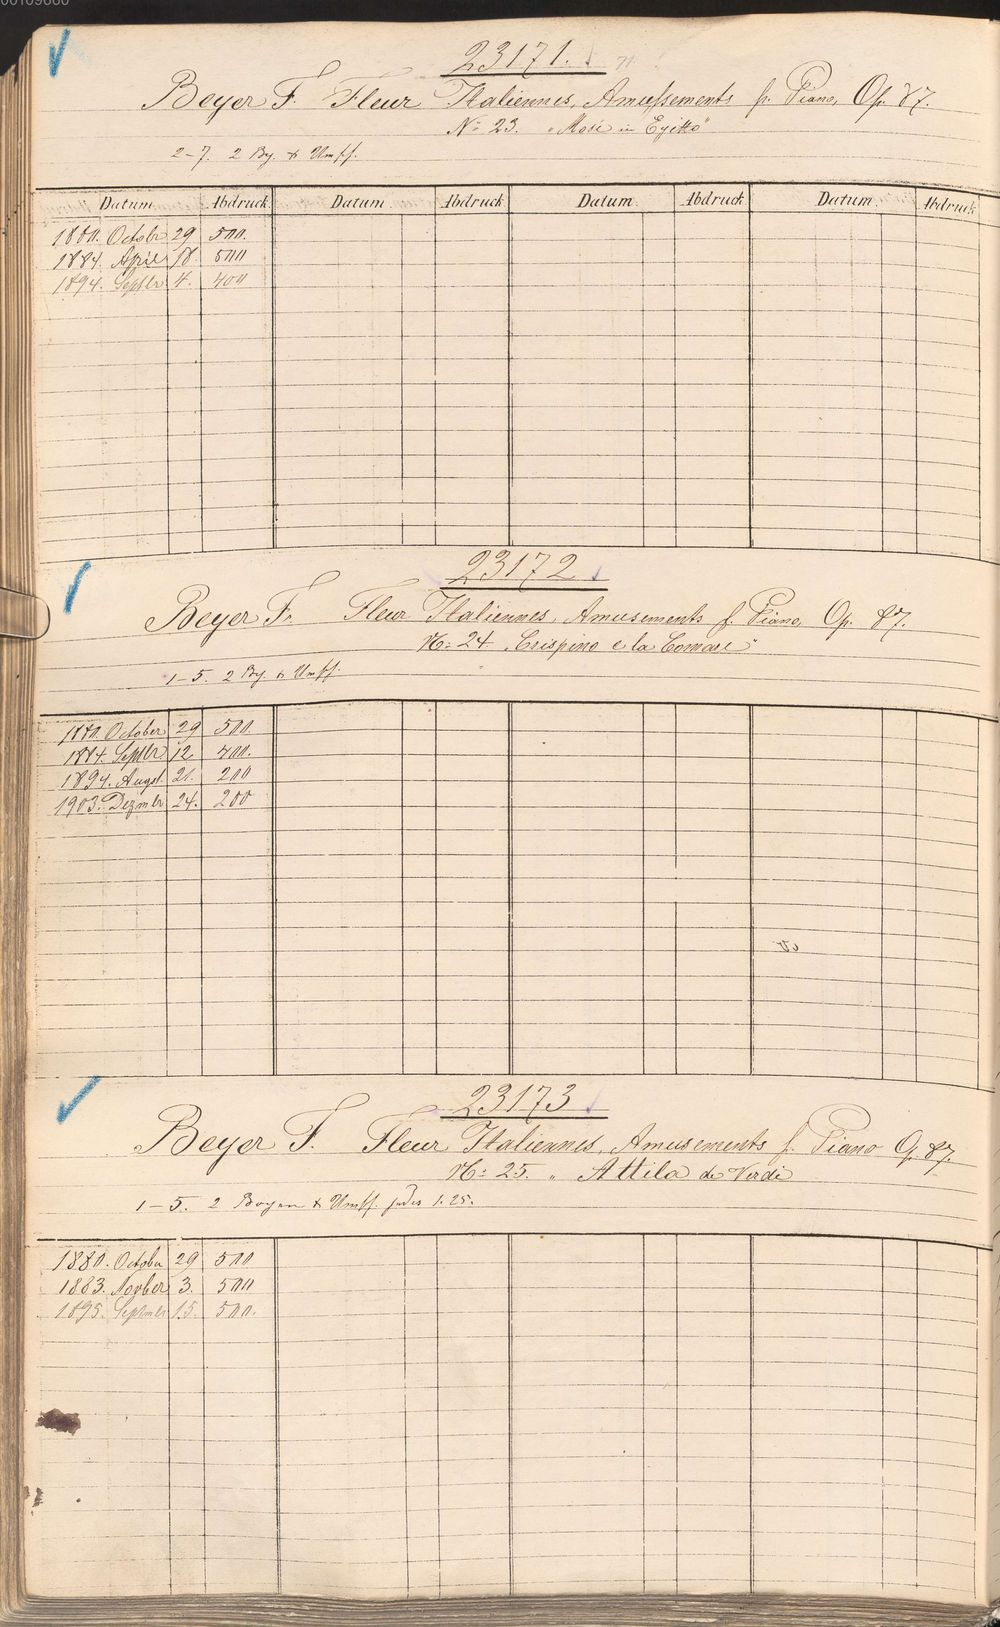 23171. 71
Beyer F. Fleur Italiennes, Amussements f. Piano, Op. 87.
No 23. "Mosé in Egitto"
2-7. 2 Bg. & Umschl.
Datum Abdruck Datum Abdruck Datum Abdruck Datum Abdruck
1880. Octobr 29 500.
1884. April 18. 500
1894. Septbr 4. 400
23172
Beyer Fr. Fleur Italiennes, Amusements f. Piano, Op. 87.
No: 24 "Crispino e la Comare"
1-5. 2 Bg. & Umschl.
1880. October 29 500.
1884. Septbr 12 400.
1894. Augst. 21. 200
1903. Dezmbr 24. 200
23173
Beyer F. Fleur Italiennes, Amusements f. Piano Op. 87.
No: 25. " Attila de Verdi
1-5. 2 Bogen & Umschl. jedes 1.25.
1880. October 29 500
1883. Novber 3. 500
1895. Septmbr 15. 500.